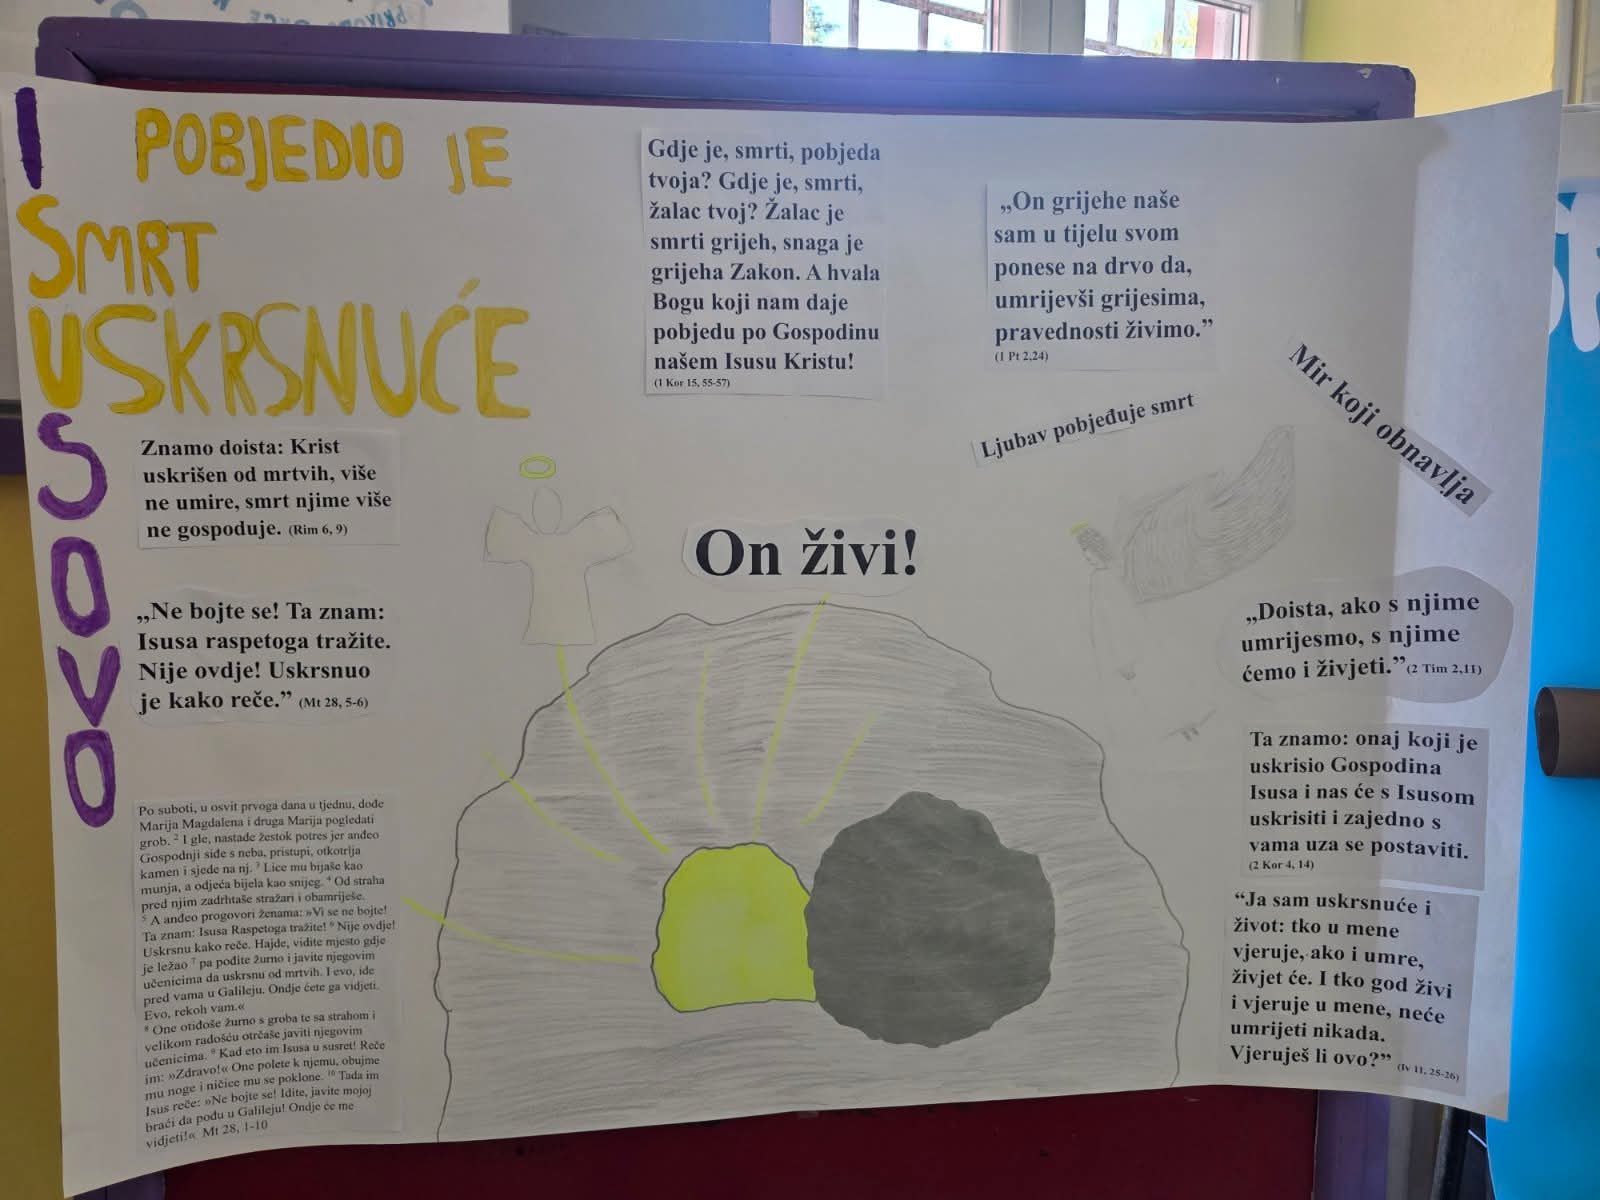 I
POBJEDIO JE
SMRT
USKRSNUĆE
S
O
V
O
Znamo doista: Krist
uskrišen od mrtvih, više
ne umire, smrt njime više
ne gospoduje. (Rim 6, 9)
„Ne bojte se! Ta znam:
Isusa raspetoga tražite.
Nije ovdje! Uskrsnuo
je kako reče.” (Mt 28, 5-6)
Po suboti, u osvit prvoga dana u tjednu, dođe
Marija Magdalena i druga Marija pogledati
grob. ² I gle, nastade žestok potres jer anđeo
Gospodnji siđe s neba, pristupi, otkotrlja
kamen i sjede na nj. ³ Lice mu bijaše kao
munja, a odjeća bijela kao snijeg. ⁴ Od straha
pred njim zadrhtaše stražari i obamriješe.
⁵ A anđeo progovori ženama: »Vi se ne bojte!
Ta znam: Isusa Raspetoga tražite! ⁶ Nije ovdje!
Uskrsnu kako reče. Hajde, vidite mjesto gdje
je ležao ⁷ pa pođite žurno i javite njegovim
učenicima da uskrsnu od mrtvih. I evo, ide
pred vama u Galileju. Ondje ćete ga vidjeti.
Evo, rekoh vam.«
⁸ One otiđoše žurno s groba te sa strahom i
velikom radošću otrčaše javiti njegovim
učenicima. ⁹ Kad eto im Isusa u susret! Reče
im: »Zdravo!« One polete k njemu, obujme
mu noge i ničice mu se poklone. ¹⁰ Tada im
Isus reče: »Ne bojte se! Idite, javite mojoj
braći da pođu u Galileju! Ondje će me
vidjeti!« Mt 28, 1-10
Gdje je, smrti, pobjeda
tvoja? Gdje je, smrti,
žalac tvoj? Žalac je
smrti grijeh, snaga je
grijeha Zakon. A hvala
Bogu koji nam daje
pobjedu po Gospodinu
našem Isusu Kristu!
(1 Kor 15, 55-57)
„On grijehe naše
sam u tijelu svom
ponese na drvo da,
umrijevši grijesima,
pravednosti živimo.”
(1 Pt 2,24)
Ljubav pobjeđuje smrt
Mir koji obnavlja
On živi!
„Doista, ako s njime
umrijesmo, s njime
ćemo i živjeti.” (2 Tim 2,11)
Ta znamo: onaj koji je
uskrisio Gospodina
Isusa i nas će s Isusom
uskrisiti i zajedno s
vama uza se postaviti.
(2 Kor 4, 14)
“Ja sam uskrsnuće i
život: tko u mene
vjeruje, ako i umre,
živjet će. I tko god živi
i vjeruje u mene, neće
umrijeti nikada.
Vjeruješ li ovo?” (Iv 11, 25-26)